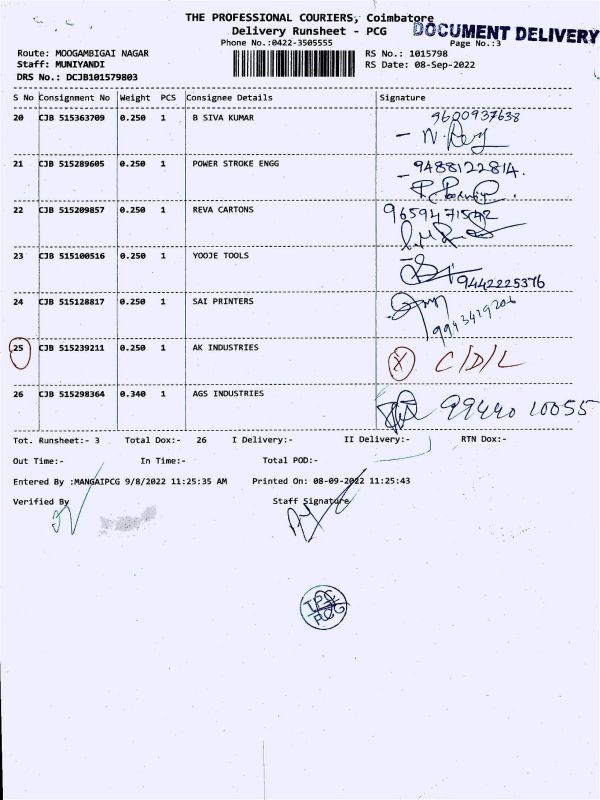 THE PROFESSIONAL COURIERS, Coimbatore
Delivery Runsheet - PCG
DOCUMENT DELIVERY
Phone No.:0422-3505555
Page No.:3
Route: MOOGAMBIGAI NAGAR
RS No.: 1015798
Staff: MUNIYANDI
RS Date: 08-Sep-2022
DRS No.: DCJB101579803
S No Consignment No Weight PCS Consignee Details Signature
20 CJB 515363709 0.250 1 B SIVA KUMAR 9600937638
21 CJB 515289605 0.250 1 POWER STROKE ENGG 9488122814.
22 CJB 515209857 0.250 1 REVA CARTONS
23 CJB 515100516 0.250 1 YOOJE TOOLS 9442225376
24 CJB 515128817 0.250 1 SAI PRINTERS
25 CJB 515239211 0.250 1 AK INDUSTRIES X C/D/L
26 CJB 515298364 0.340 1 AGS INDUSTRIES 99440 10055
Tot. Runsheet:- 3 Total Dox:- 26 I Delivery:- II Delivery:- RTN Dox:-
Out Time:- In Time:- Total POD:-
Entered By :MANGAIPCG 9/8/2022 11:25:35 AM Printed On: 08-09-2022 11:25:43
Verified By Staff Signature
TPC
PCG